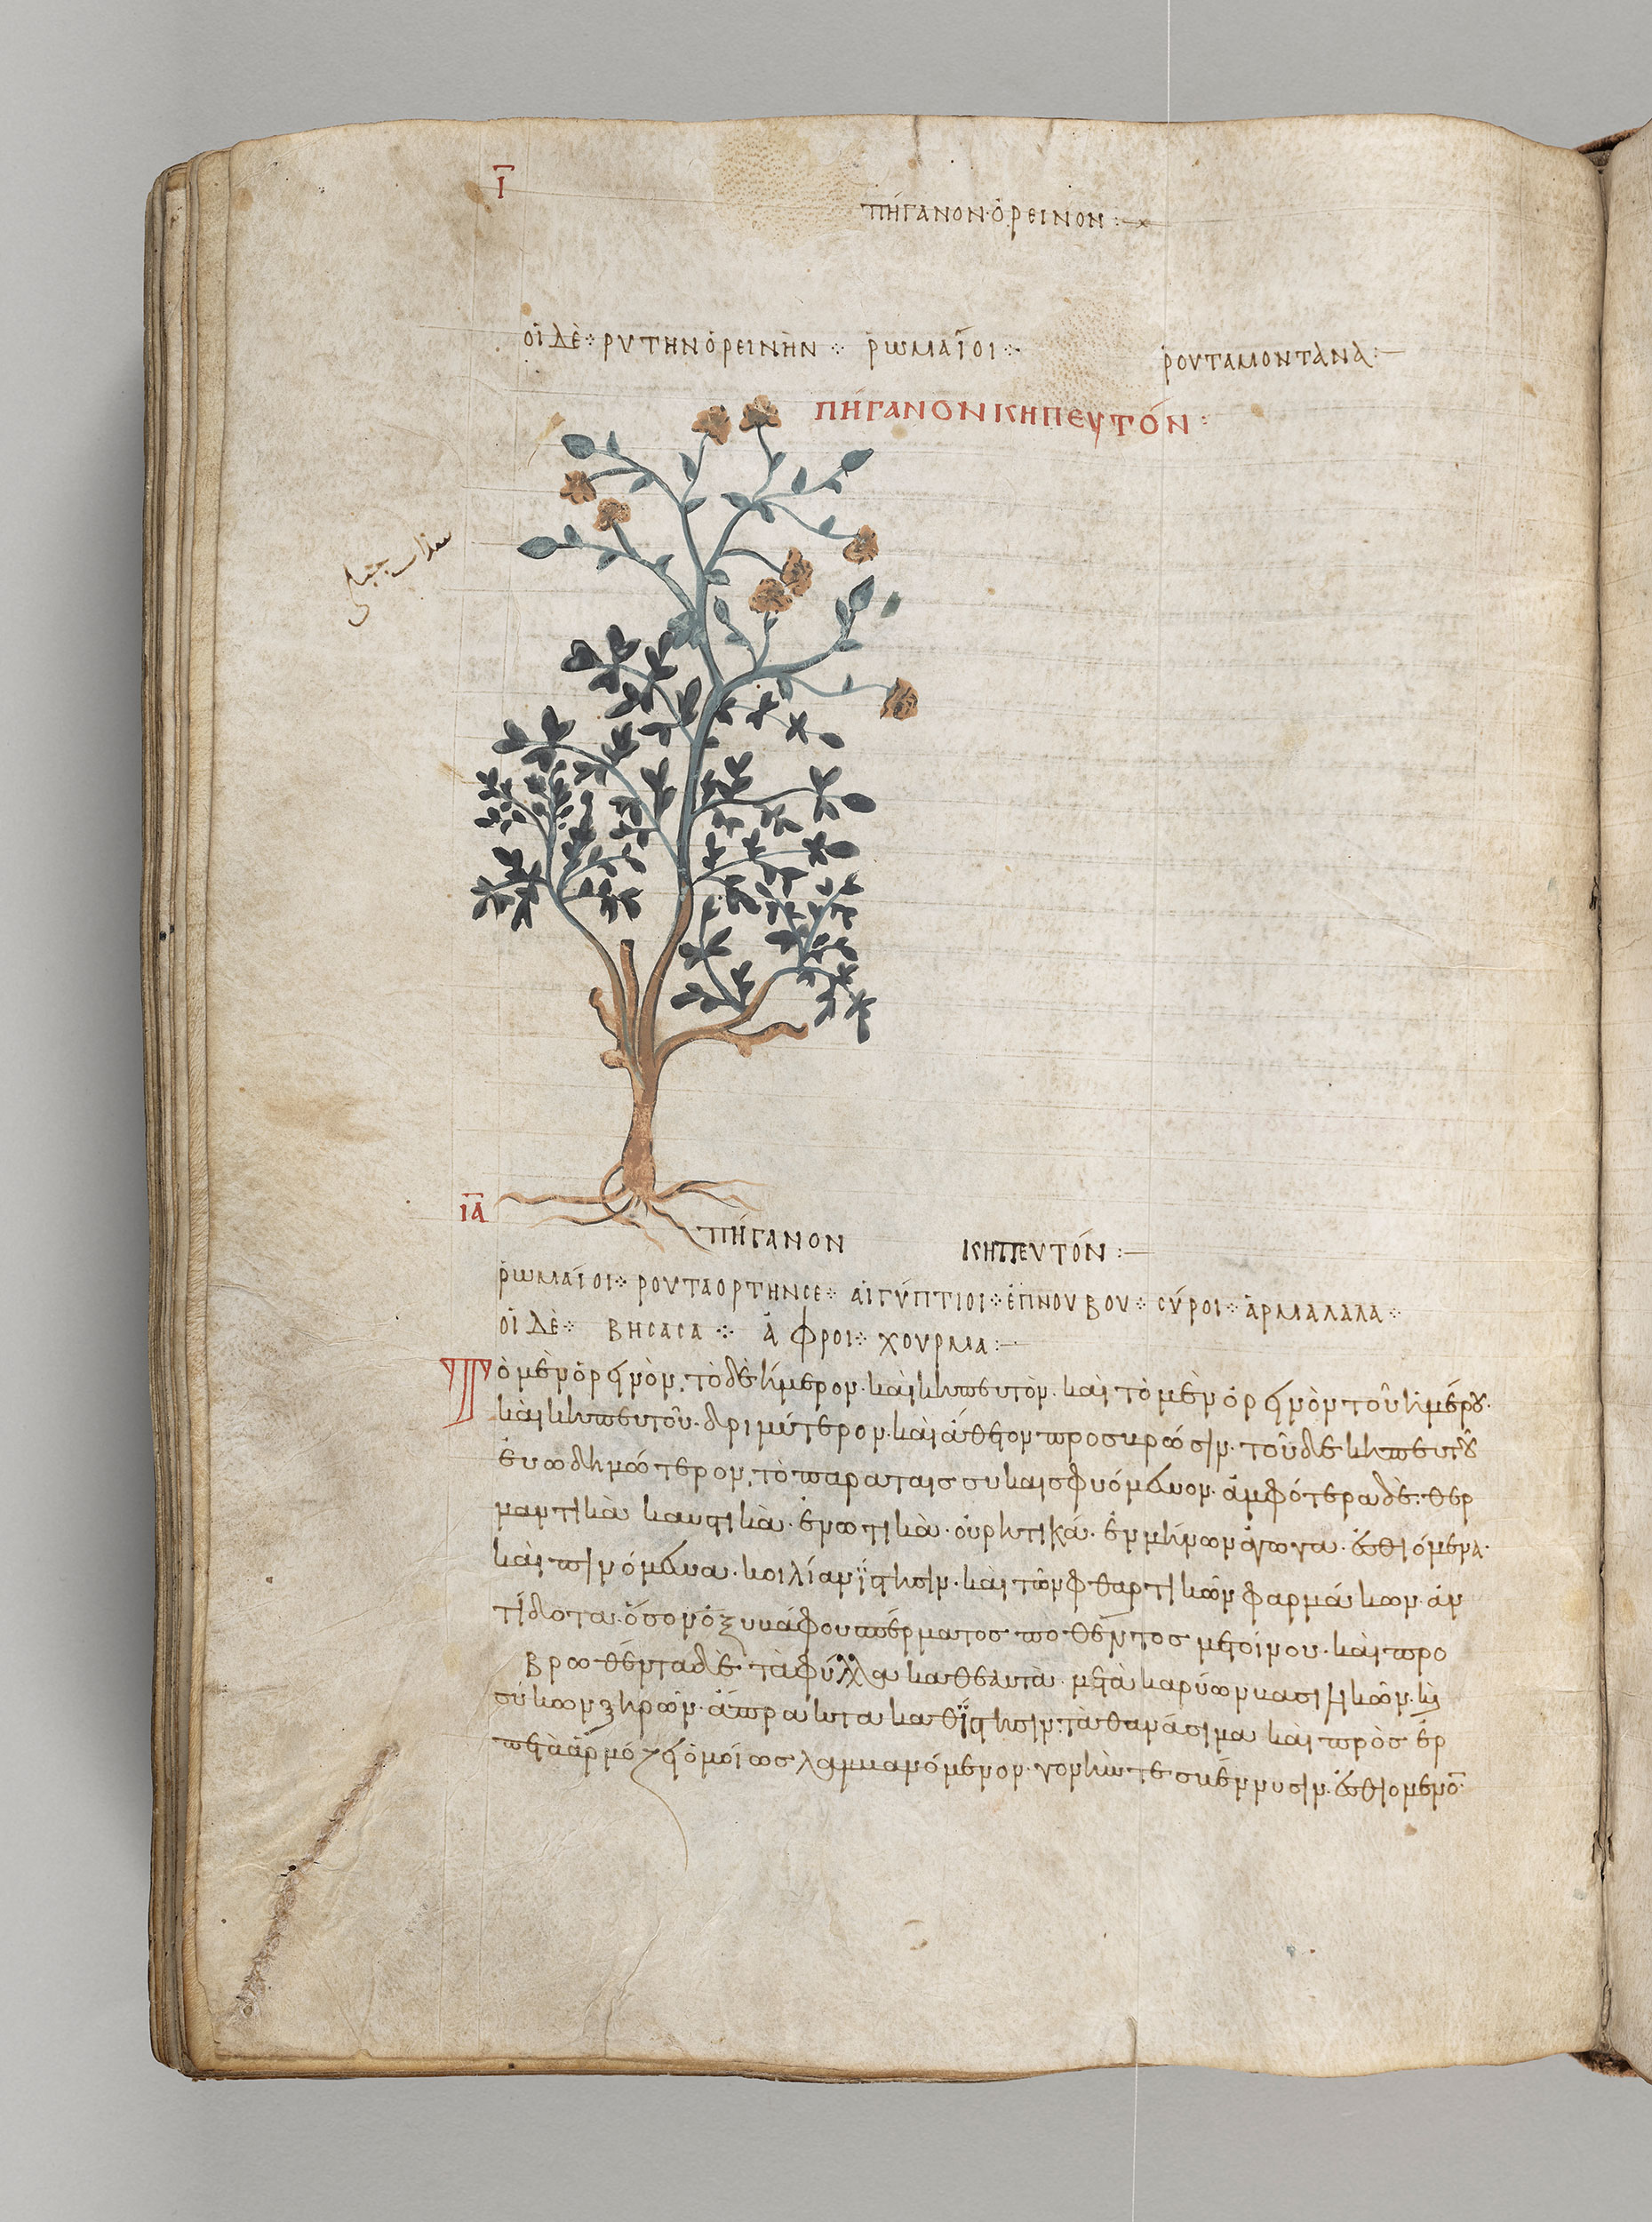 Ῑ
ΠΉΓΑΝΟΝ·ὈΡΕΙΝΟΝ:—
ΟἹ ΔῈ ⁘ ΡΥΤΗΝ ὈΡΕΙΝῊΝ ⁘ ῬΩΜΑῖΟΙ ⁘ ῬΟΥΤΑΜΟΝΤΑΝΑ:—
ΠΉΓΑΝΟΝ ΚΗΠΕΥΤΌΝ:
سذاب جبلی
ῙᾹ
ΠΉΓΑΝΟΝ ΚΗΠΕΥΤΌΝ:—
ῬΩΜΑῖΟΙ ⁘ ΡΟΥΤΑ ΟΡΤΗΝϹΕ ⁘ ΑἸΓΎΠΤΙΟΙ ⁘ ἘΠΝΟΥΒΟΥ ⁘ ϹΎΡΟΙ ⁘ ἈΡΜΑΛΑΛΑ ⁘
ΟἹ ΔῈ ⁘ ΒΗϹΑϹΑ ⁘ ἌΦΡΟΙ ⁘ ΧΟΥΡΜΑ:—
Τὸ μὲν ὀρεινὸν, τὸ δὲ ἥμερον· καὶ κηπευτὸν· καὶ τὸ μὲν ὀρεινὸν τοῦ ἡμέρου·
καὶ κηπευτοῦ· δριμύτερον· καὶ ἄθετον προσ βρῶσιν· τοῦ δὲ κηπευτοῦ
ἐυωδημώτερον, τὸ παρα ταισ συκαισ φυόμενον· ἀμφότερα δὲ· θερ
μαντικὰ καυστικὰ· ἑλκωτικὰ· οὐρητικά· ἐμμήνων ἀγωγα· ἐσθιόμενα·
καὶ πινόμενα· κοιλίαν ἵστησιν· καὶ τῶν φθαρτικῶν φαρμάκων· ἀν
τίδοτα· ὅσον ὀξυβάφου σπέρματοσ ποθέντοσ μετ οίνου· καὶ προ
βρωθέντα δὲ τὰ φύλλα καθεαυτὰ· μετὰ καρύων βασιλικῶν· καὶ
σύκων ξηρῶν· ἄπρακτα καθΐστησιν· τὰ θανάσιμα καὶ πρὸσ ἑρ
πετὰ ἁρμόζει ὁμοίωσ λαμβανόμενον· γονήν τε σβέννυσιν· ἐσθιομενο̄·